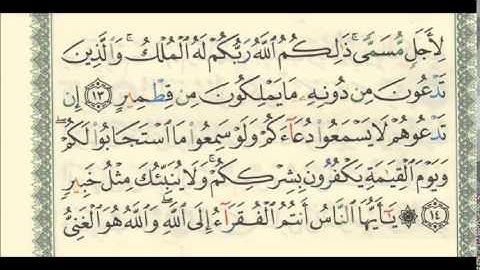 لِأَجَلٍ مُّسَمًّى ۚ ذَٰلِكُمُ ٱللَّهُ رَبُّكُمْ لَهُ ٱلْمُلْكُ ۚ وَٱلَّذِينَ
تَدْعُونَ مِن دُونِهِۦ مَا يَمْلِكُونَ مِن قِطْمِيرٍ ١٣ إِن
تَدْعُوهُمْ لَا يَسْمَعُوا۟ دُعَآءَكُمْ وَلَوْ سَمِعُوا۟ مَا ٱسْتَجَابُوا۟ لَكُمْ ۖ
وَيَوْمَ ٱلْقِيَٰمَةِ يَكْفُرُونَ بِشِرْكِكُمْ ۚ وَلَا يُنَبِّئُكَ مِثْلُ خَبِيرٍ
١٤ ۞ يَٰٓأَيُّهَا ٱلنَّاسُ أَنتُمُ ٱلْفُقَرَآءُ إِلَى ٱللَّهِ ۖ وَٱللَّهُ هُوَ ٱلْغَنِىُّ